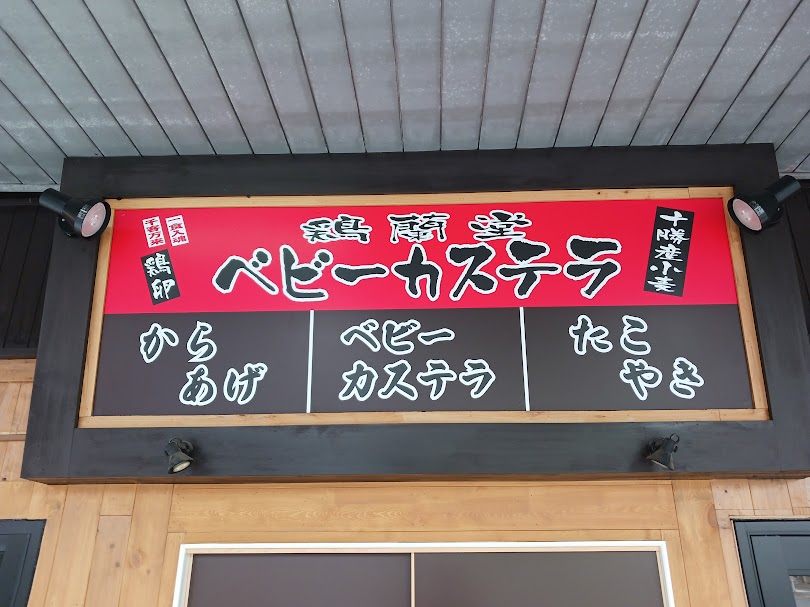 鶏蘭堂
ベビーカステラ
一食入魂
千客万来
鶏卵
十勝産小麦
からあげ
ベビー
カステラ
たこ
やき